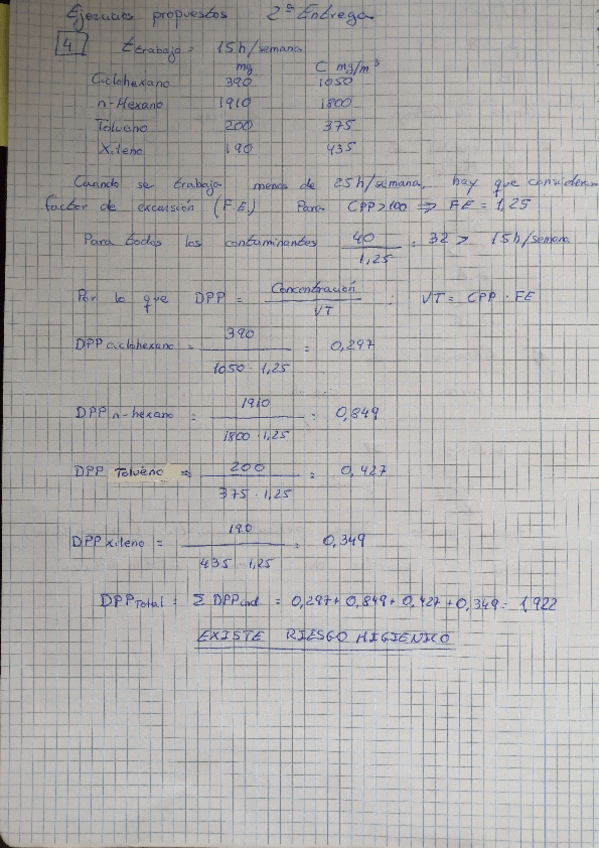 Ejercicios propuestos 2ª Entrega
4 t trabajo = 15h/semana
mg C mg/m³
Ciclohexano 390 1050
n-Hexano 1910 1800
Tolueno 200 375
Xileno 190 435
Cuando se trabaja menos de 25h/semana, hay que considerar
factor de excursión (F.E.) Para CPP>100 ⇒ FE = 1,25
Para todos los contaminantes 40/1,25 = 32 > 15h/semana
Por lo que DPP = Concentración/VT ; VT = CPP · FE
DPP ciclohexano = 390/1050 · 1,25 = 0,297
DPP n-hexano = 1910/1800 · 1,25 = 0,849
DPP Tolueno = 200/375 · 1,25 = 0,427
DPP xileno = 190/435 · 1,25 = 0,349
DPP Total = Σ DPP ind = 0,297 + 0,849 + 0,427 + 0,349 = 1,922
EXISTE RIESGO HIGIENICO